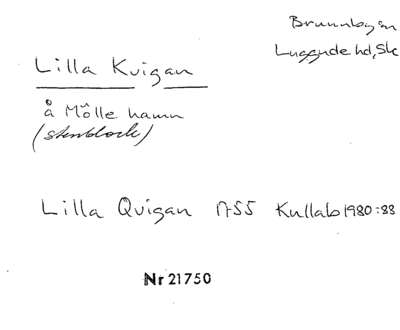 Brunnbyn
Luggude hd, Sk
Lilla Kvigan
å Mölle hamn
(stenblock)
Lilla Qvigan 1755 Kullab 1980:88
Nr 21750